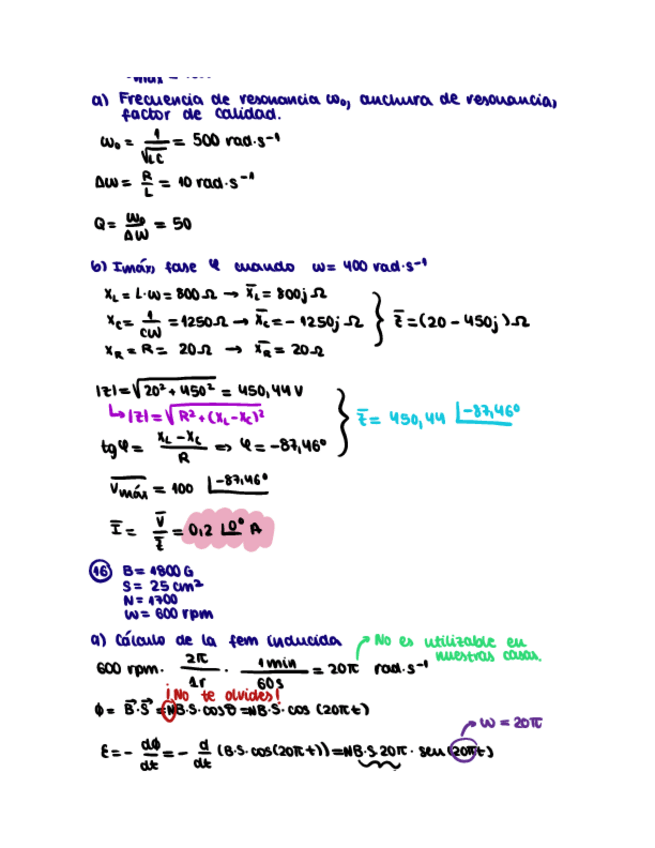 a) Frecuencia de resonancia ω₀, anchura de resonancia,
factor de calidad.
ω₀ = 1/√LC = 500 rad·s⁻¹
Δω = R/L = 10 rad·s⁻¹
Q = ω₀/ΔW = 50
b) Imáx, fase φ cuando ω = 400 rad·s⁻¹
X_L = L·ω = 800 Ω → X̄_L = 800j Ω
X_C = 1/CW = 1250 Ω → X̄_C = - 1250j Ω } Z̄ = (20 - 450j) Ω
X_R = R = 20 Ω → X̄_R = 20 Ω
|Z| = √20² + 450² = 450,44 V
↳ |Z| = √R² + (X_L - X_C)² } Z̄ = 450,44 |-87,46º
tg φ = X_L - X_C/R ⇒ φ = -87,46º
V̄máx = 100 |-87,46º
Ī = V̄/Z̄ = 0,2 |0º A
16 B = 1800 G
S = 25 cm²
N = 1700
W = 600 rpm
a) Cálculo de la fem inducida
No es utilizable en
nuestras casas.
600 rpm · 2π/1r · 1 min/60s = 20π rad·s⁻¹
¡No te olvides!
ϕ = B⃗·S⃗ = NB·S·cosθ = NB·S·cos (20πt)
W = 20π
ε = - dϕ/dt = - d/dt (B·S·cos(20πt)) = NB·S·20π · sen (20πt)